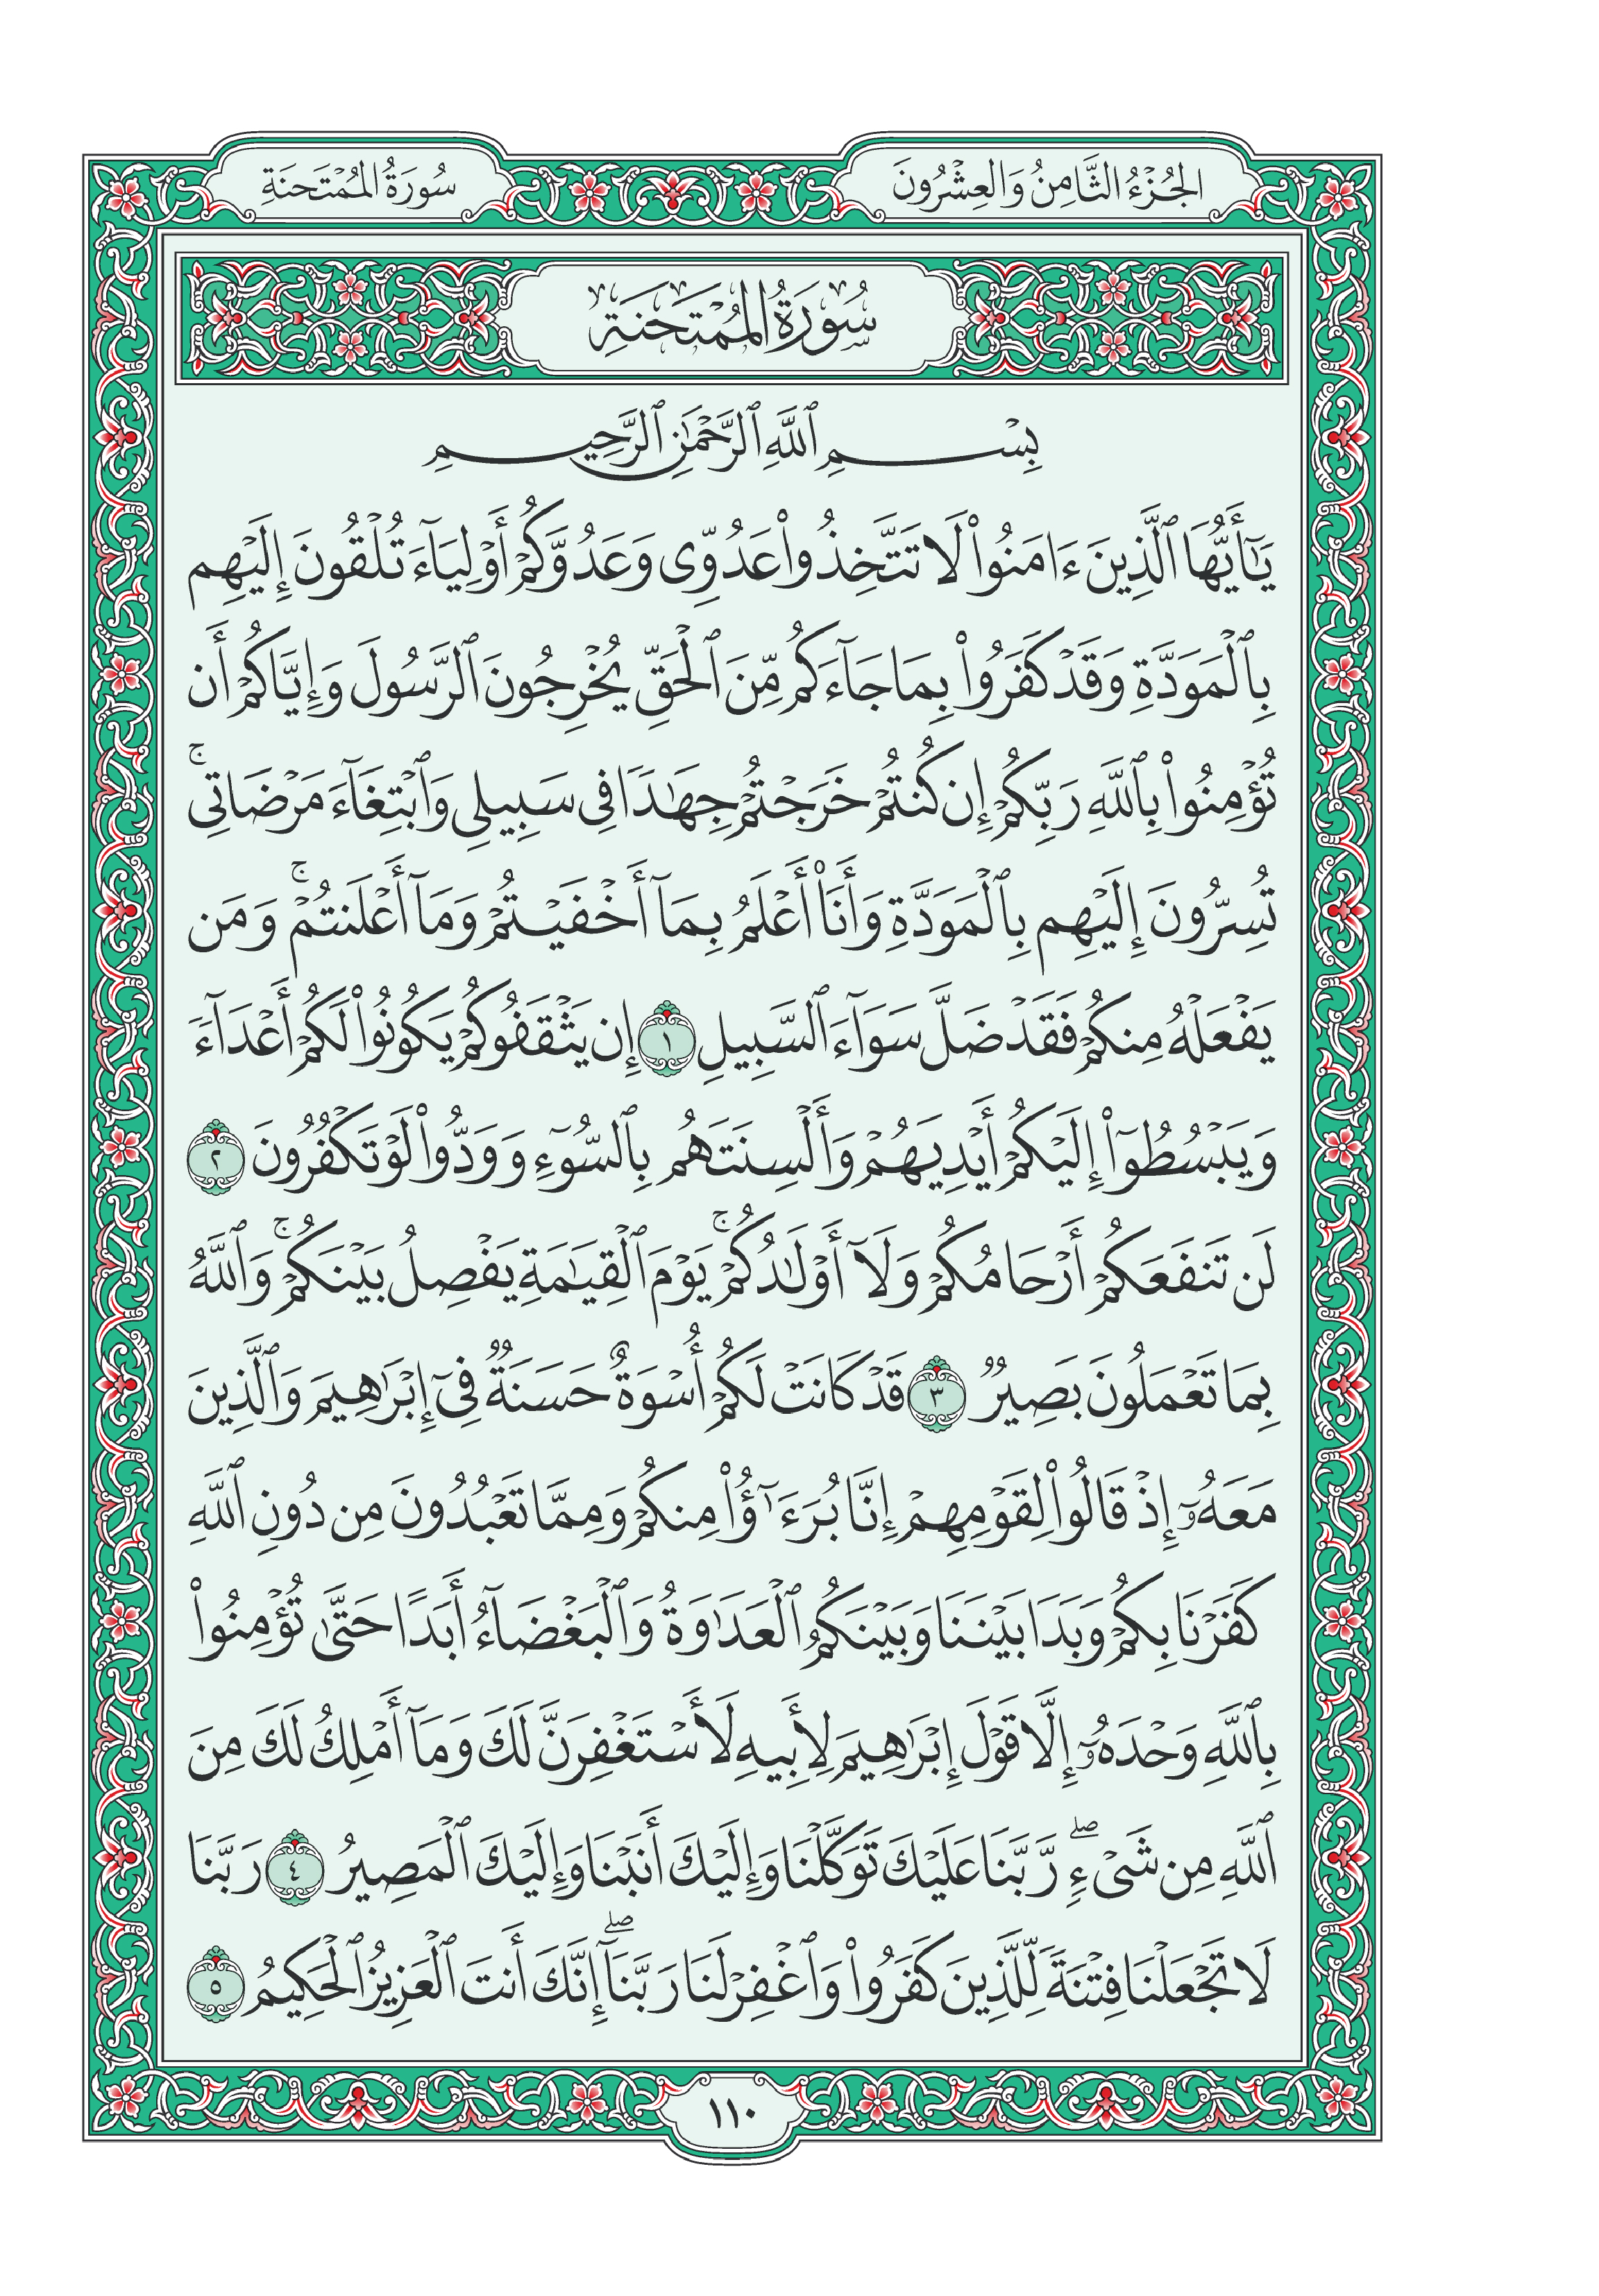 الجُزْءُ الثَّامِنُ وَالعِشْرُونَ
سُورَةُ المُمْتَحَنَةِ
سُورَةُ المُمْتَحَنَةِ
بِسْمِ ٱللَّهِ ٱلرَّحْمَٰنِ ٱلرَّحِيمِ
يَٰٓأَيُّهَا ٱلَّذِينَ ءَامَنُوا۟ لَا تَتَّخِذُوا۟ عَدُوِّى وَعَدُوَّكُمْ أَوْلِيَآءَ تُلْقُونَ إِلَيْهِم
بِٱلْمَوَدَّةِ وَقَدْ كَفَرُوا۟ بِمَا جَآءَكُم مِّنَ ٱلْحَقِّ يُخْرِجُونَ ٱلرَّسُولَ وَإِيَّاكُمْ أَن
تُؤْمِنُوا۟ بِٱللَّهِ رَبِّكُمْ إِن كُنتُمْ خَرَجْتُمْ جِهَٰدًا فِى سَبِيلِى وَٱبْتِغَآءَ مَرْضَاتِى ۚ
تُسِرُّونَ إِلَيْهِم بِٱلْمَوَدَّةِ وَأَنَا۠ أَعْلَمُ بِمَآ أَخْفَيْتُمْ وَمَآ أَعْلَنتُمْ ۚ وَمَن
يَفْعَلْهُ مِنكُمْ فَقَدْ ضَلَّ سَوَآءَ ٱلسَّبِيلِ ١ إِن يَثْقَفُوكُمْ يَكُونُوا۟ لَكُمْ أَعْدَآءً
وَيَبْسُطُوٓا۟ إِلَيْكُمْ أَيْدِيَهُمْ وَأَلْسِنَتَهُم بِٱلسُّوٓءِ وَوَدُّوا۟ لَوْ تَكْفُرُونَ ٢
لَن تَنفَعَكُمْ أَرْحَامُكُمْ وَلَآ أَوْلَٰدُكُمْ ۚ يَوْمَ ٱلْقِيَٰمَةِ يَفْصِلُ بَيْنَكُمْ ۚ وَٱللَّهُ
بِمَا تَعْمَلُونَ بَصِيرٌ ٣ قَدْ كَانَتْ لَكُمْ أُسْوَةٌ حَسَنَةٌ فِىٓ إِبْرَٰهِيمَ وَٱلَّذِينَ
مَعَهُۥٓ إِذْ قَالُوا۟ لِقَوْمِهِمْ إِنَّا بُرَءَٰٓؤُا۟ مِنكُمْ وَمِمَّا تَعْبُدُونَ مِن دُونِ ٱللَّهِ
كَفَرْنَا بِكُمْ وَبَدَا بَيْنَنَا وَبَيْنَكُمُ ٱلْعَدَٰوَةُ وَٱلْبَغْضَآءُ أَبَدًا حَتَّىٰ تُؤْمِنُوا۟
بِٱللَّهِ وَحْدَهُۥٓ إِلَّا قَوْلَ إِبْرَٰهِيمَ لِأَبِيهِ لَأَسْتَغْفِرَنَّ لَكَ وَمَآ أَمْلِكُ لَكَ مِنَ
ٱللَّهِ مِن شَىْءٍ ۖ رَّبَّنَا عَلَيْكَ تَوَكَّلْنَا وَإِلَيْكَ أَنَبْنَا وَإِلَيْكَ ٱلْمَصِيرُ ٤ رَبَّنَا
لَا تَجْعَلْنَا فِتْنَةً لِّلَّذِينَ كَفَرُوا۟ وَٱغْفِرْ لَنَا رَبَّنَآ ۖ إِنَّكَ أَنتَ ٱلْعَزِيزُ ٱلْحَكِيمُ ٥
١١٠